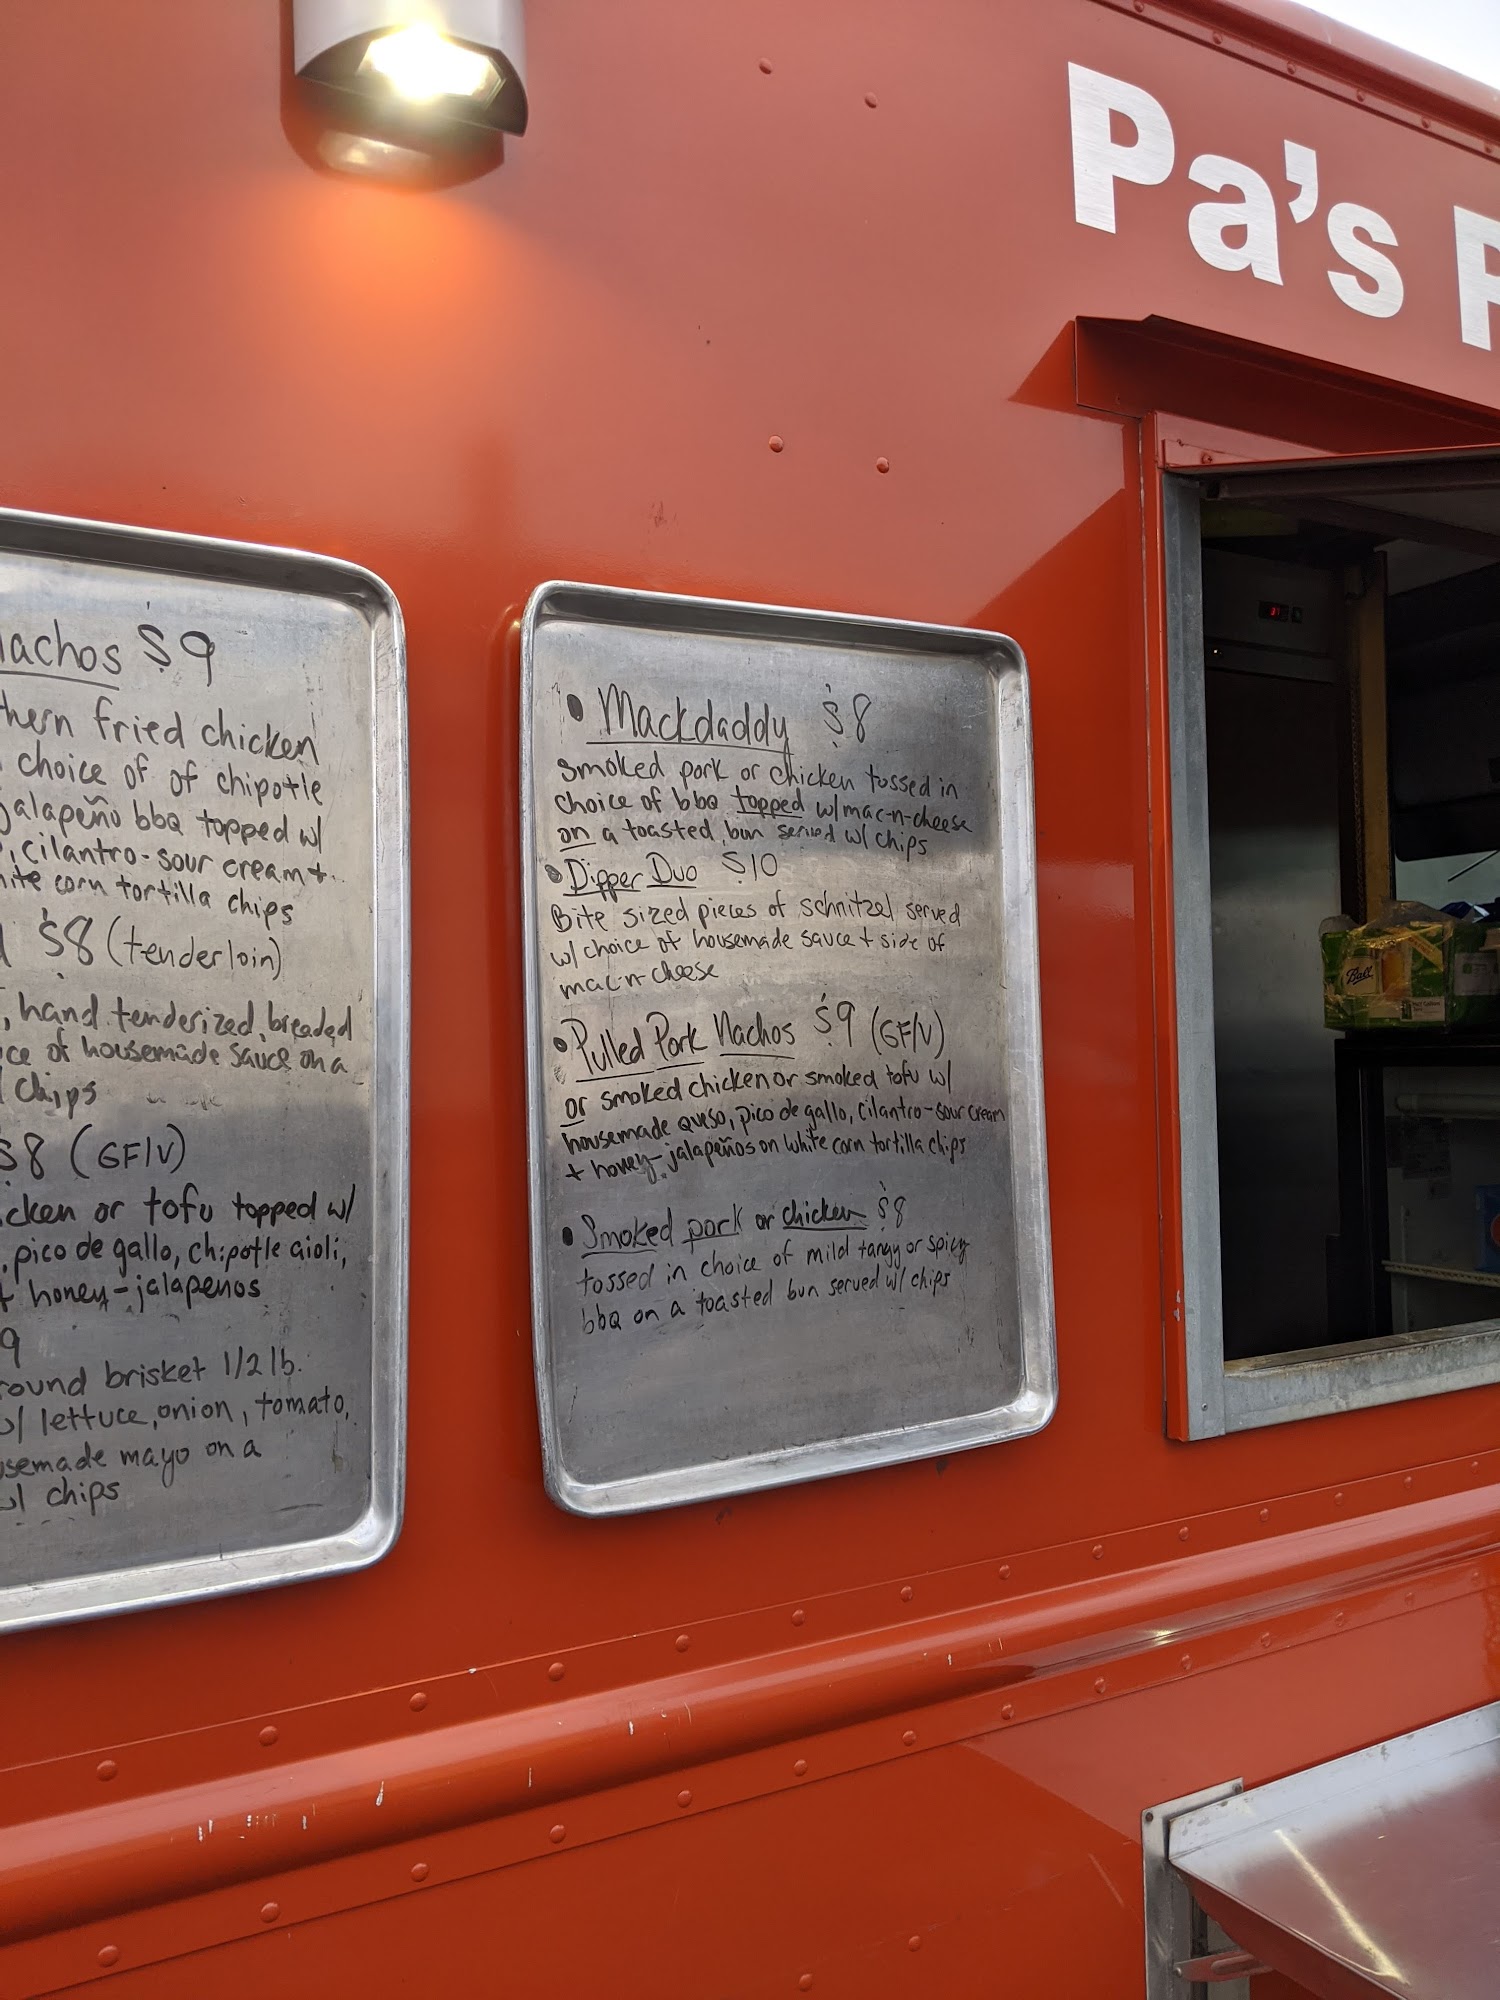 Pa's
Nachos $9
thern fried chicken
choice of of chipotle
jalapeño bbq topped w/
, cilantro-sour cream +
white corn tortilla chips
$8 (tenderloin)
, hand tenderized, breaded
choice of housemade sauce on a
chips
$8 (GF/V)
chicken or tofu topped w/
, pico de gallo, chipotle aioli,
+ honey-jalapenos
9
ground brisket 1/2 lb.
w/ lettuce, onion, tomato,
housemade mayo on a
w/ chips
• Mackdaddy $8
smoked pork or chicken tossed in
choice of bbq topped w/ mac-n-cheese
on a toasted bun served w/ chips
• Dipper Duo $10
Bite sized pieces of schnitzel served
w/ choice of housemade sauce + side of
mac-n-cheese
• Pulled Pork Nachos $9 (GF/V)
or smoked chicken or smoked tofu w/
housemade queso, pico de gallo, cilantro-sour cream
+ honey-jalapeños on white corn tortilla chips
• Smoked pork or chicken $8
tossed in choice of mild tangy or spicy
bbq on a toasted bun served w/ chips
Ball